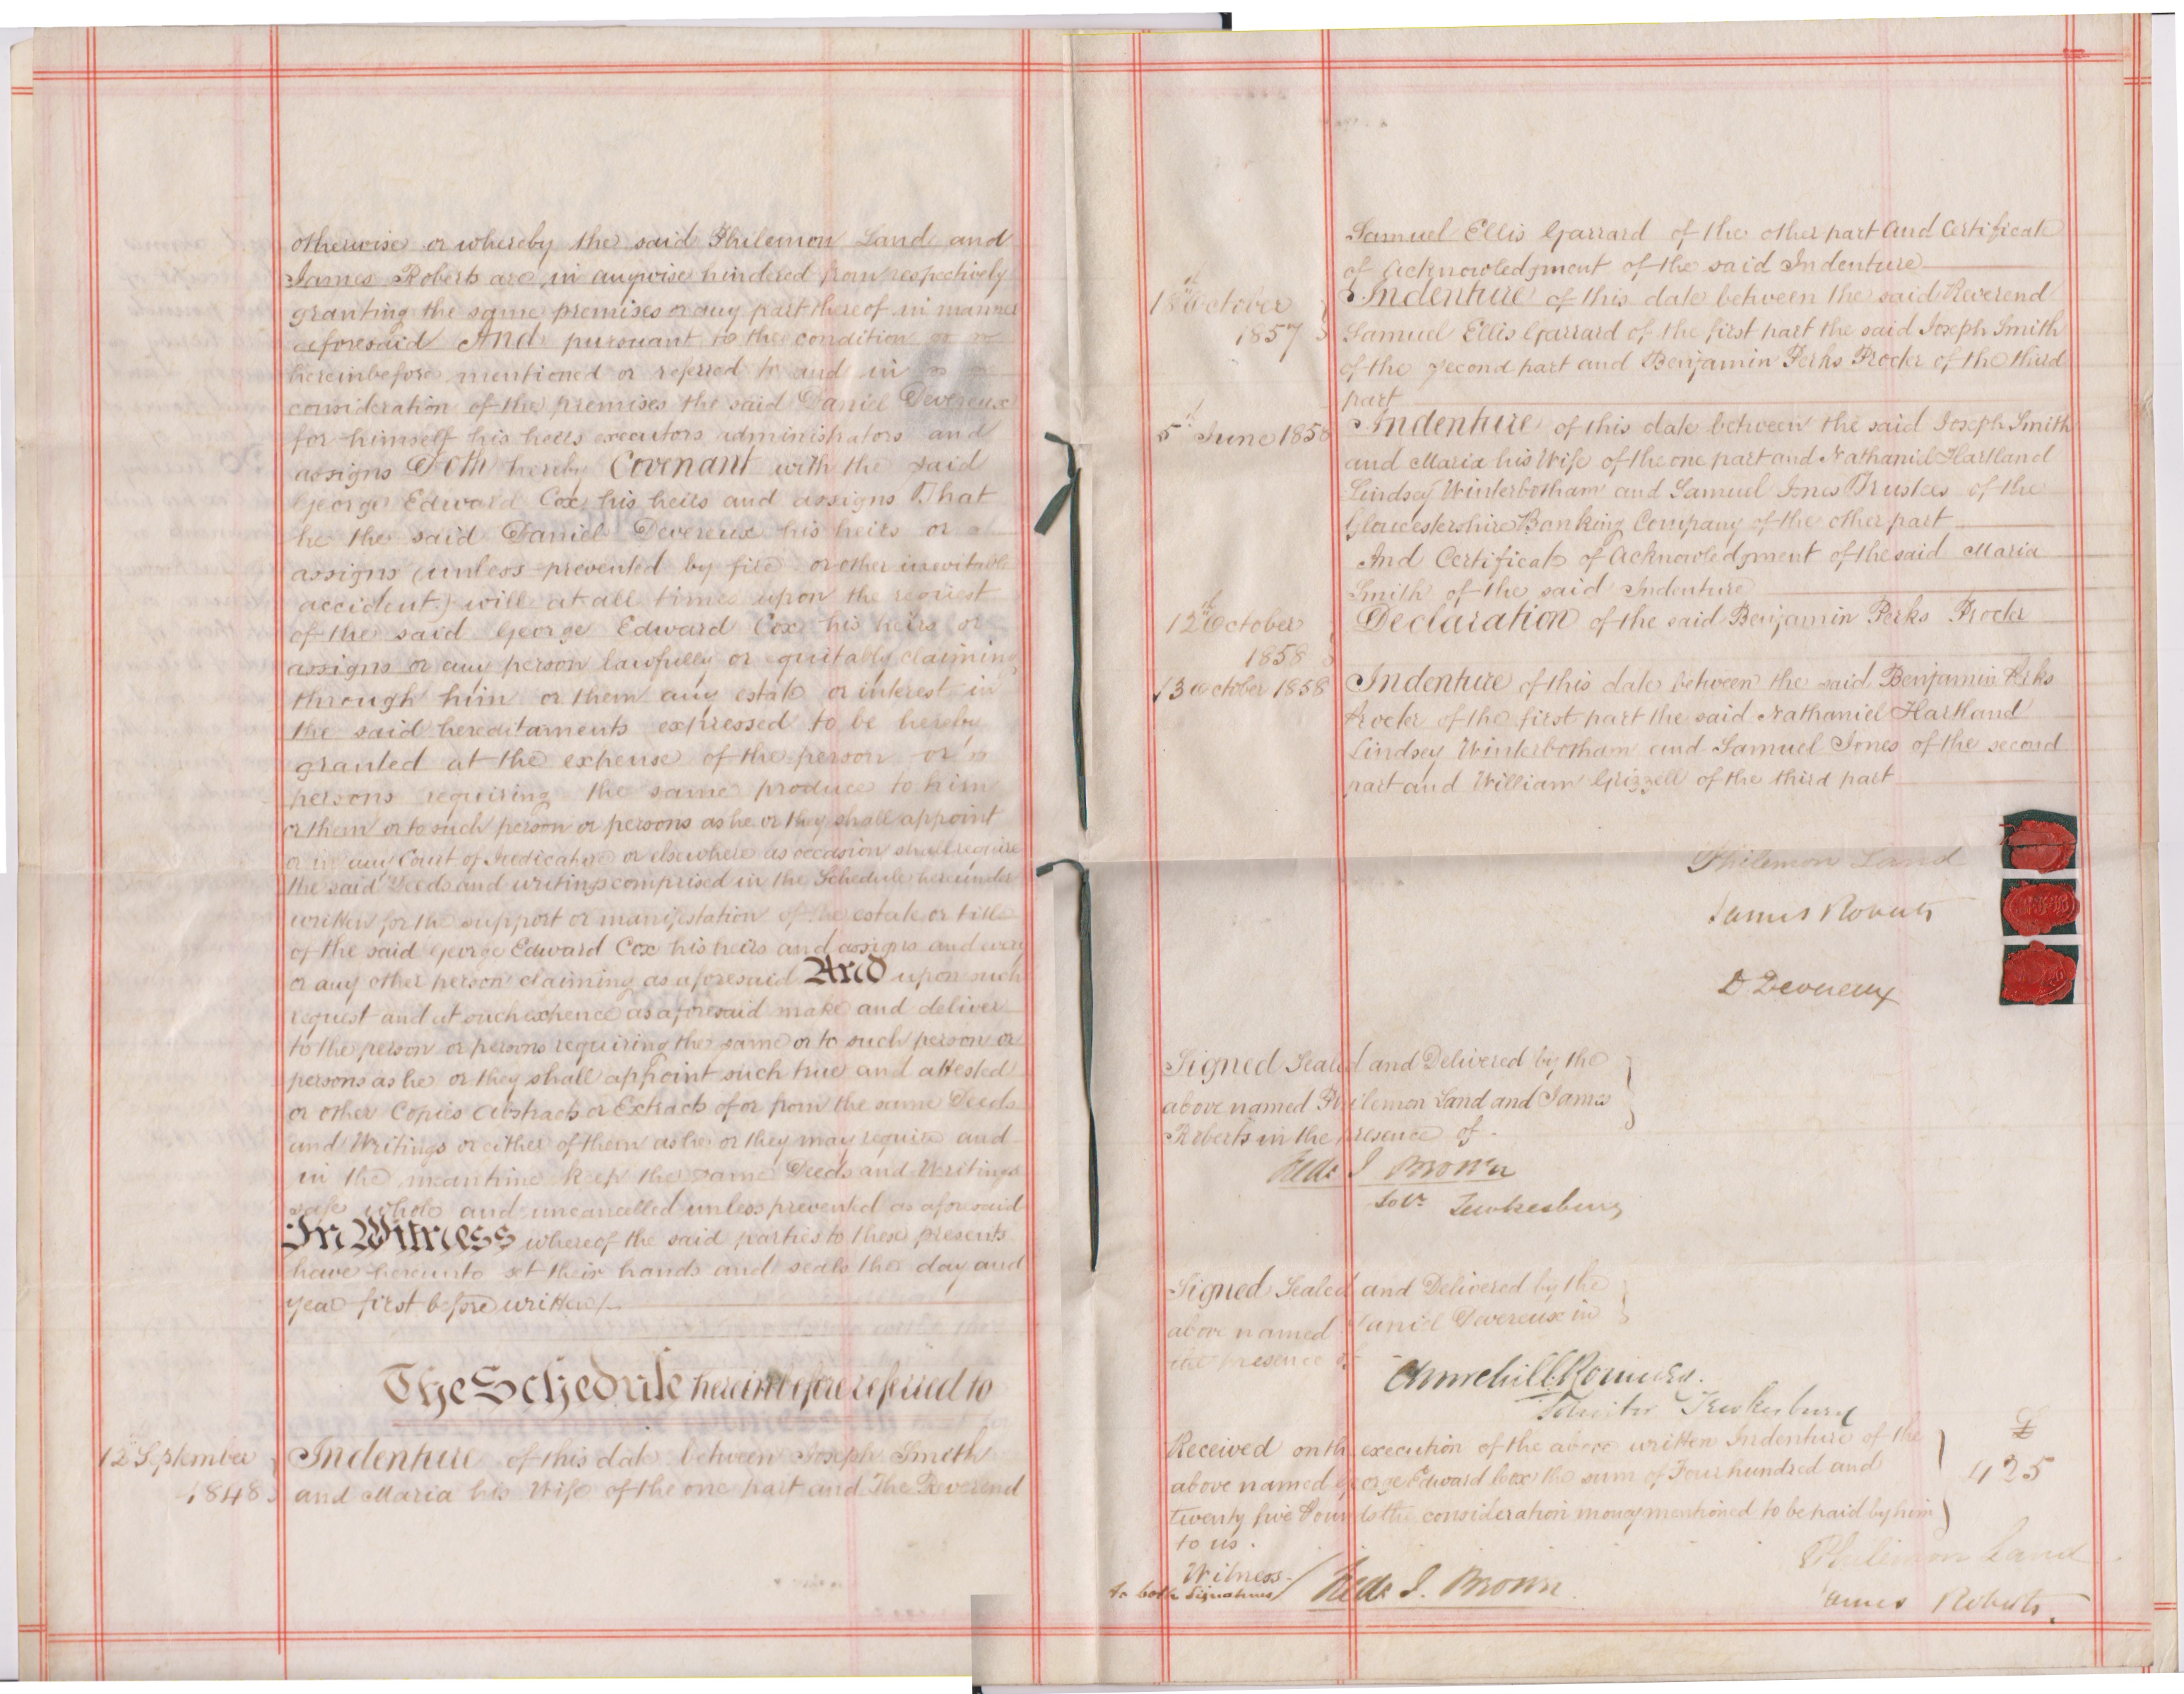 otherwise or whereby the said Philemon Land and
James Roberts are in anywise hindered from respectively
granting the same premises or any part thereof in manner
aforesaid And pursuant to the condition
hereinbefore mentioned or referred to and in
consideration of the premises the said Daniel Devereux
for himself his heirs executors administrators and
assigns Doth hereby Covenant with the said
George Edward Cox his heirs and assigns That
he the said Daniel Devereux his heirs or
assigns (unless prevented by fire or other inevitable
accident) will at all times upon the request
of the said George Edward Cox his heirs or
assigns or any person lawfully or equitably claiming
through him or them any estate or interest in
the said hereditaments expressed to be hereby
granted at the expense of the person or
persons requiring the same produce to him
or them or to such person or persons as he or they shall appoint
or in any Court of Judicature or elsewhere as occasion shall require
the said Deeds and writings comprised in the Schedule hereunder
written for the support or manifestation of the estate or title
of the said George Edward Cox his heirs and assigns and every
or any other person claiming as aforesaid And upon such
request and at such expence as aforesaid make and deliver
to the person or persons requiring the same or to such person or
persons as he or they shall appoint such true and attested
or other Copies Abstracts or Extracts of or from the same Deeds
and Writings or either of them as he or they may require and
in the meantime keep the same Deeds and Writings
safe whole and uncancelled unless prevented as aforesaid
In Witness whereof the said parties to these presents
have hereunto set their hands and seals the day and
year first before written
The Schedule hereinbefore referred to
12th September 1848
Indenture of this date between Joseph Smith
and Maria his Wife of the one part and The Reverend
Samuel Ellis Garrard of the other part And Certificate
of Acknowledgment of the said Indenture
1st October 1857
Indenture of this date between the said Reverend
Samuel Ellis Garrard of the first part the said Joseph Smith
of the second part and Benjamin Perks Procter of the third
part
5th June 1858
Indenture of this date between the said Joseph Smith
and Maria his Wife of the one part and Nathaniel Hartland
Lindsey Winterbotham and Samuel Jones Trustees of the
Gloucestershire Banking Company of the other part
And Certificate of Acknowledgment of the said Maria
Smith of the said Indenture
12th October 1858
Declaration of the said Benjamin Perks Procter
13 October 1858
Indenture of this date between the said Benjamin Perks
Procter of the first part the said Nathaniel Hartland
Lindsey Winterbotham and Samuel Jones of the second
part and William Grizzell of the third part
Philemon Land
James Roberts
D Devereux
Signed Sealed and Delivered by the
above named Philemon Land and James
Roberts in the presence of
Fredk J. Brown
Solr Tewkesbury
Signed Sealed and Delivered by the
above named Daniel Devereux in
the presence of
Solicitor Tewkesbury
Received on the execution of the above written Indenture of the
above named George Edward Cox the sum of Four hundred and
twenty five Pounds the consideration money mentioned to be paid by him
to us.
£
425
Witness
to both Signatures
Fredk J. Brown
Philemon Land
James Roberts.